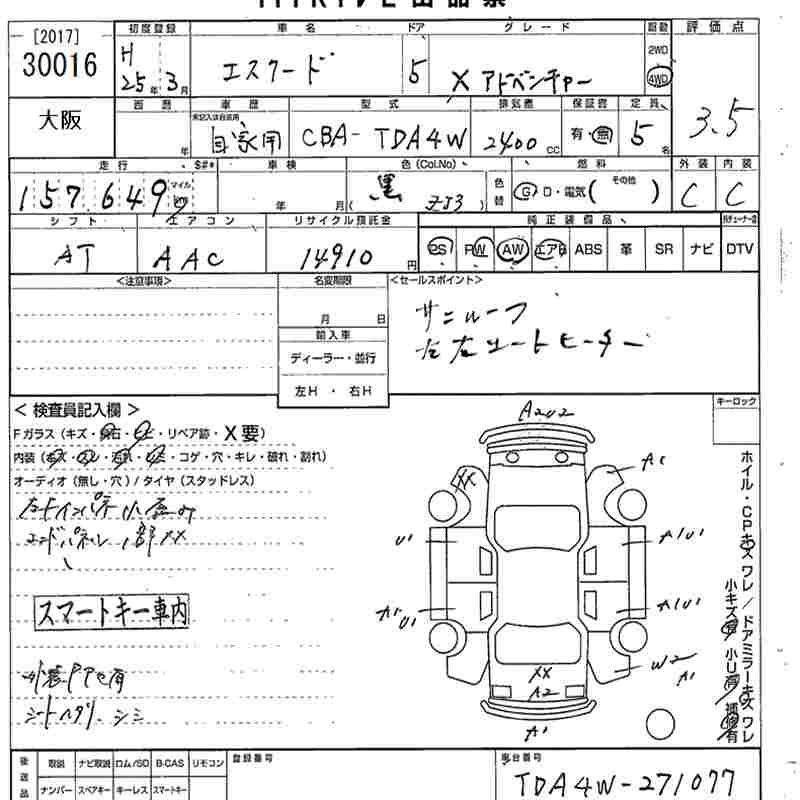 [2017]
30016
初度登録
車名
ドア
グレード
駆動
評価点
H
25年3月
エスクード
5
X アドベンチャー
2WD
4WD
3.5
大阪
西暦
車歴
型式
排気量
保証書
定員
年
未記入は自家用
自家用
CBA- TDA4W
2400 CC
有・無
5名
走行
S#*
車検
色(Col.No)
色替
燃料
外装
内装
157,649
マイル
Km
年 月
黒
( ZJ3 )
G・D・電気( その他 )
C
C
シフト
エアコン
リサイクル預託金
純正装備品
AT
AAC
14910円
PS
PW
AW
エアB
ABS
革
SR
ナビ
DTV
<注意事項>
名変期限
<セールスポイント>
月 日
輸入車
ディーラー・並行
左H ・ 右H
サンルーフ
左右シートヒーター
<検査員記入欄>
キーロック
Fガラス(キズ・飛石・ヒビ・リペア跡・X要)
内装(キズ・スレ・汚れ・シミ・コゲ・穴・キレ・破れ・割れ)
オーディオ(無し・穴)/タイヤ(スタッドレス)
エンドパネル 1部XX
スマートキー車内
シートヘタリ、シミ
A2U2
XX
A1
U1
A1U1
A1
U1
A1U1
XX
A2
W2
A1
A1
ホイル・CPキズワレ/ドアミラーキズワレ
小キズ有 小U有 補修有
後送品
取説
ナビ取説
ロム/SD
B-CAS
リモコン
登録番号
車台番号
ナンバー
スペアキー
キーレス
スマートキー
TDA4W-271077